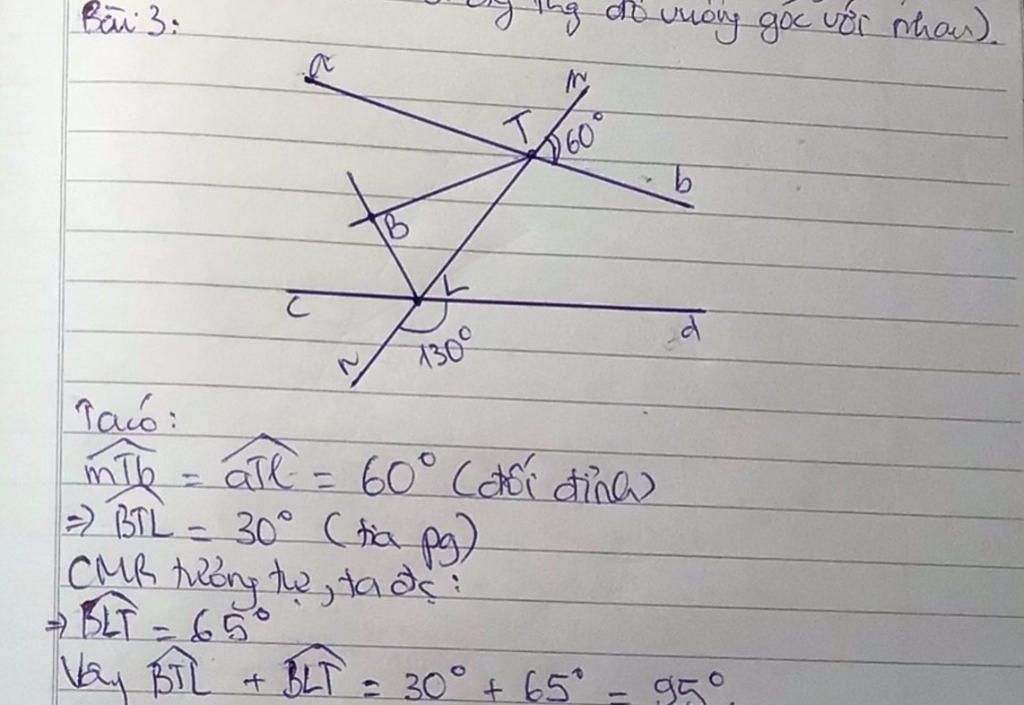 đó vuông góc với nhau).
Bài 3:
a
m
T
60°
b
B
c
L
d
130°
N
Ta có:
mTb = aTL = 60° (đối đỉnh)
=> BTL = 30° (tia pg)
CMR tương tự, ta đc:
=> BLT = 65°
Vậy BTL + BLT = 30° + 65° = 95°.